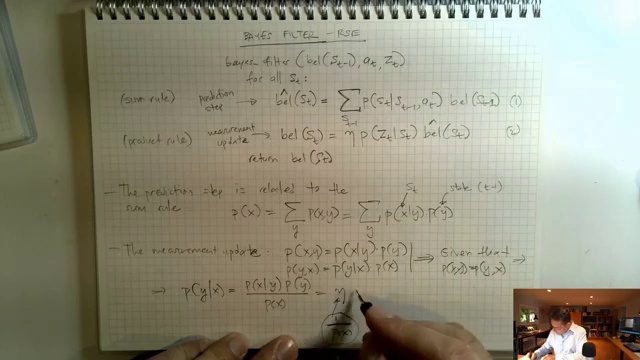 BAYES FILTER - RSE
bayes-filter (bel(S_{t-1}), a_t, Z_t)
for all S_t:
(sum rule) prediction step → b̂el(S_t) = ∑_{S_{t-1}} p(S_t|S_{t-1}, a_t) bel(S_{t-1}) (1)
(product rule) measurement update → bel(S_t) = η p(Z_t|S_t) b̂el(S_t) (2)
return bel(S_t)
- The prediction step is related to the S_t state (t-1)
sum rule p(x) = ∑_y p(x,y) = ∑_y p(x|y) p(y)
- The measurement update: p(x,y) = p(x|y) · p(y) ⟹ Given that ⟹
p(y,x) = p(y|x) p(x) p(x,y) = p(y,x)
⟹ p(y|x) = p(x|y) p(y) / p(x) = η
1 / p(x)